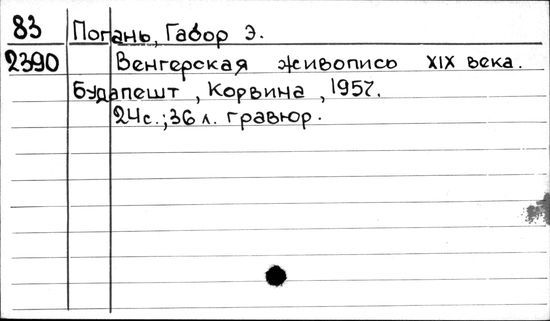 83 Погань, Габор Э.
2390 Венгерская живопись XIX века.
Будапешт, Корвина, 1957.
24с.; 36 л. гравюр.